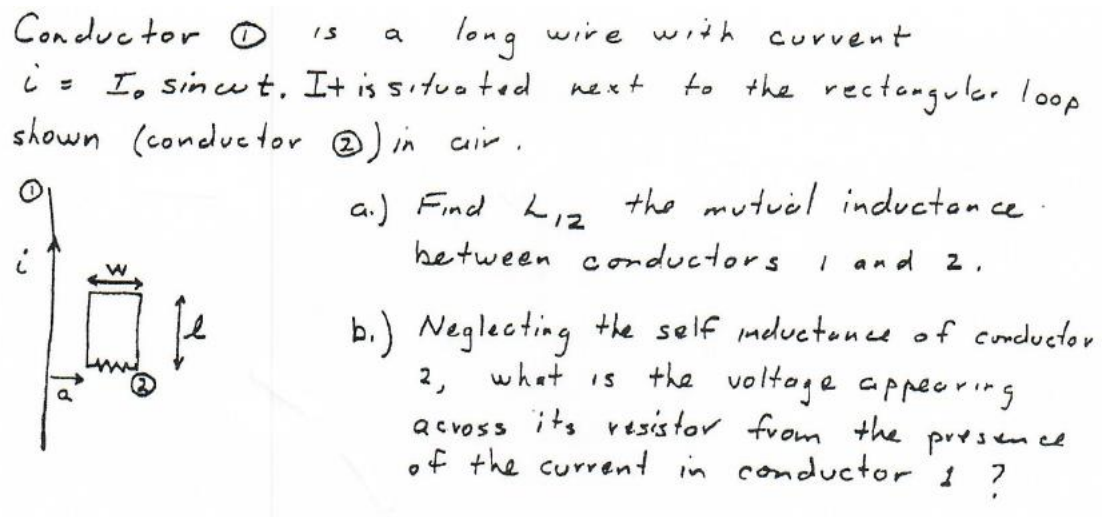 Conductor ① is a long wire with current
i = I₀ sin ωt. It is situated next to the rectangular loop
shown (conductor ②) in air.
①
i
w
l
a
②
a.) Find L₁₂ the mutual inductance
between conductors 1 and 2.
b.) Neglecting the self inductance of conductor
2, what is the voltage appearing
across its resistor from the presence
of the current in conductor 1 ?